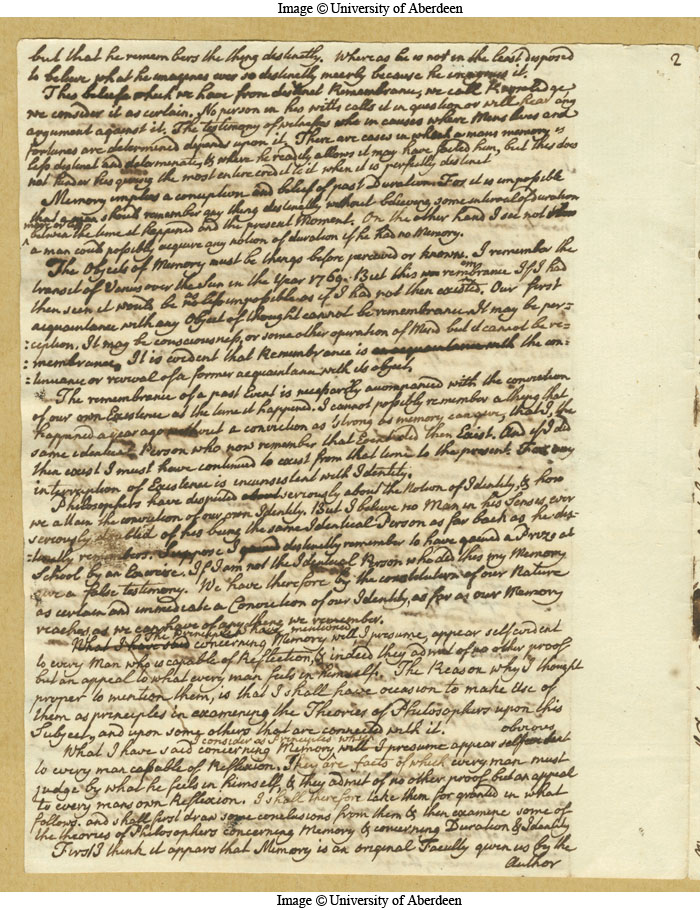 Image © University of Aberdeen
2
but that he remembers the thing distinctly. Whereas he is not in the least disposed
to believe what he imagines ever so distinctly meerly because he imagines it.
This belief which we have from distinct Remembrance, we call Knowledge,
we consider it as certain. No person in his witts calls it in question or will hear any
argument against it. The testimony of witnesses who in causes where Mans lives and
fortunes are determined depends upon it. There are cases in which a mans memory is
less distinct and determinate, & where he readily allows it may have failed him, but this does
not hinder his giving the most entire credit to it when it is perfectly distinct
Memory implies a conception and belief of past Duration. For it is impossible
that a man should remember any thing distinctly without believing some interval of Duration
more or less
between the time it happened and the present Moment. On the other hand I see not how
a man could possibly acquire any notion of duration if he had no Memory.
The Objects of Memory must be things before perceived or known. I remember the
transit of Venus over the Sun in the Year 1769. But this remembrance If I had
then seen it would be no less impossible as if I had not then existed. Our first
acquaintance with any Object of thought cannot be remembrance. It may be per=
:ception. It may be consciousness, or some other operation of Mind but it cannot be re=
:membrance. It is evident that Remembrance is an acquaintance with the con=
:tinuance or revival of a former acquaintance with its object.
The remembrance of a past Event is necessarily accompanied with the conviction
of our own Existence at the time it happened. I cannot possibly remember a thing that
happened a year ago without a conviction as strong as memory can give, that I, the
same identical Person who now remember that Event did then Exist. And if I did
then exist I must have continued to exist from that time to the present. For any
interruption of Existence is inconsistent with Identity.
Philosophers have disputed about seriously about the Notion of Identity, & how
we attain the conviction of our own Identity. But I believe no Man in his Senses, ever
seriously doubted of his being the same Identical Person as far back as he dis=
:tinctly remembers. Suppose I distinctly remember to have gained a Prize at
School by an Exercise. If I am not the Identical Person who did this my Memory
gave a false testimony. We have therefore by the constitution of our Nature
as certain and immediate a Conviction of our Identity, as far as our Memory
reaches as we can have of any thing we remember.
The Principles I have mentioned
What I have said concerning Memory will I presume, appear self evident
to every Man who is capable of Reflection, & indeed they admit of no other proof
but an appeal to what every man feels in himself. The Reason why I thought
proper to mention them, is that I shall have occasion to make use of
them as principles in examining the Theories of Philosophers upon this
Subject, and upon some others that are connected with it.
consider as Principles which
obvious
What I have said concerning Memory will I presume appear self evident
to every man capable of Reflexion. They are facts of which every man must
judge by what he feels in himself, & they admit of no other proof but an appeal
to every mans own Reflexion. I shall therefore take them for granted in what
follows. and shall first draw some conclusions from them & then examine some of
the theories of Philosophers concerning Memory & concerning Duration & Identity
First I think it appears that Memory is an original Faculty given us by the
Author
Image © University of Aberdeen